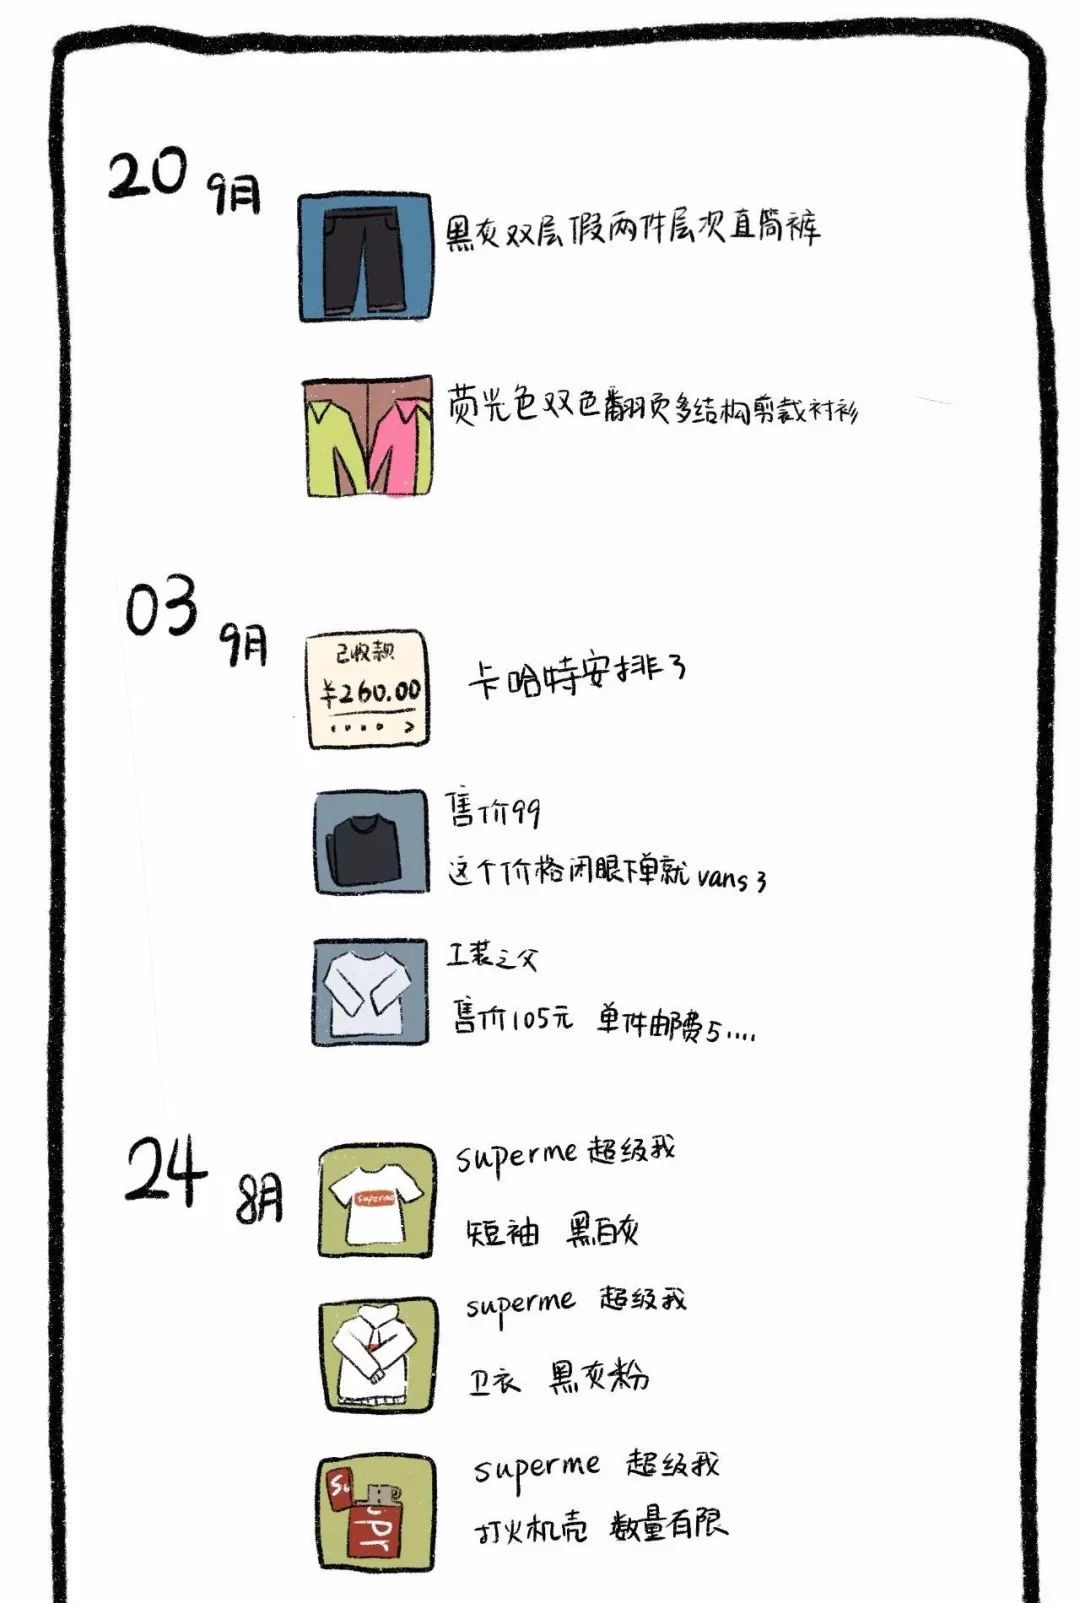 20 9月
黑灰双层假两件层次直筒裤
荧光色双色翻页多结构剪裁衬衫
03 9月
已收款
¥260.00
卡哈特安排了
售价99
这个价格闭眼下单就vans了
工装之父
售价105元 单件邮费5....
24 8月
superme
superme 超级我
短袖 黑白灰
superme 超级我
卫衣 黑灰粉
su
pr
superme 超级我
打火机壳 数量有限